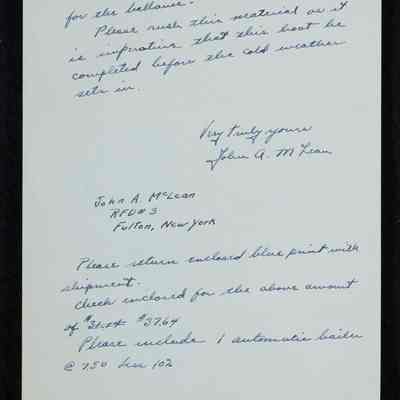 for the ballance.
Please rush this material as it
is imperative that this boat be
completed before the cold weather
sets in.
Very truly yours
John A. McLean
John A. McLean
RFD# 3
Fulton, New York
Please return enclosed blue print with
shipment.
Check enclosed for the above amount
of $37.64
Please include 1 automatic bailer
@ 7.50 less 10%